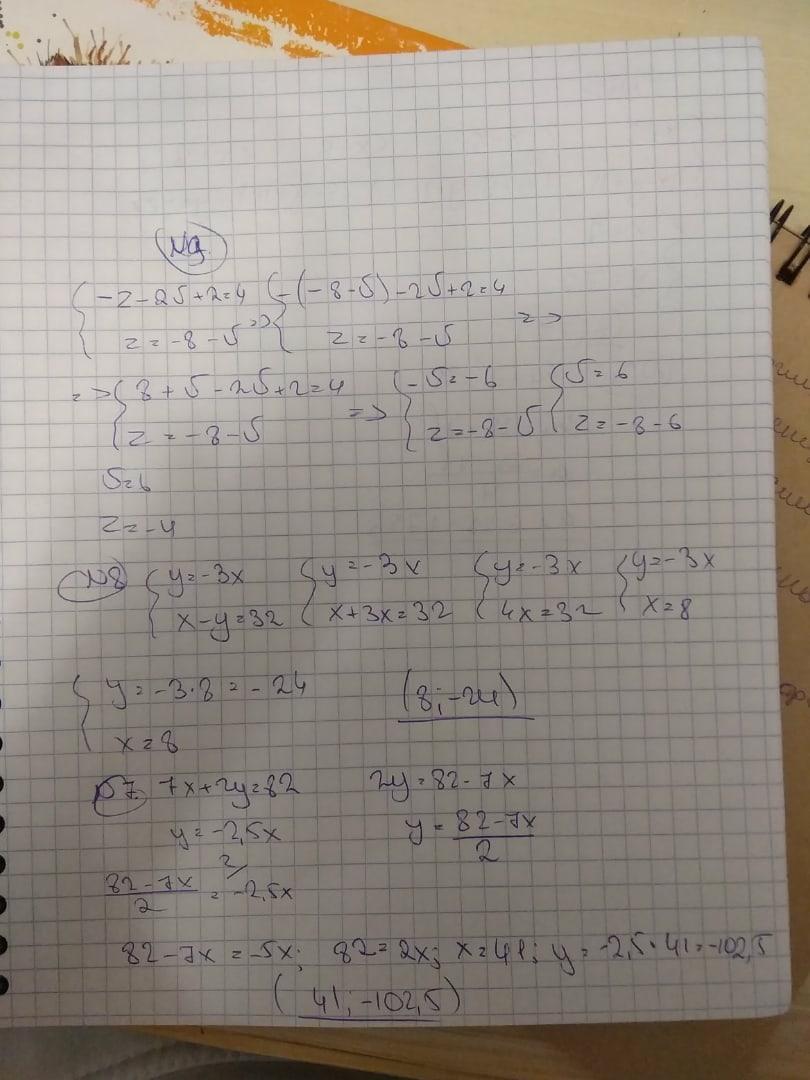 №9.
{ -z - 2s + 2 = 4 => { -(-8-s) - 2s + 2 = 4
z = -8 - s z = -8 - s =>
=> { 8 + s - 2s + 2 = 4 => { -s = -6 { s = 6
z = -8 - s z = -8 - s z = -8 - 6
s = 6
z = -4
№8 { y = -3x { y = -3x { y = -3x { y = -3x
x - y = 32 x + 3x = 32 4x = 32 x = 8
{ y = -3·8 = -24 (8; -24)
x = 8
№7. 7x + 2y = 82 2y = 82 - 7x
y = -2,5x y = (82 - 7x)/2
(82 - 7x)/2 = -2,5x
82 - 7x = -5x; 82 = 2x; x = 41; y = -2,5·41 = -102,5
(41; -102,5)